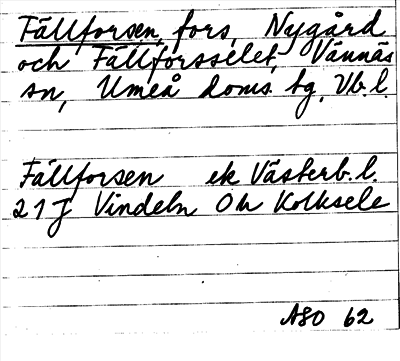 Fällforsen, fors, Nygård
och Fällforsselet, Vännäs
sn, Umeå doms. tg, Vb.l.
Fällforsen ek Västerb.l.
21J Vindeln Ou Kolksele
ASO 62